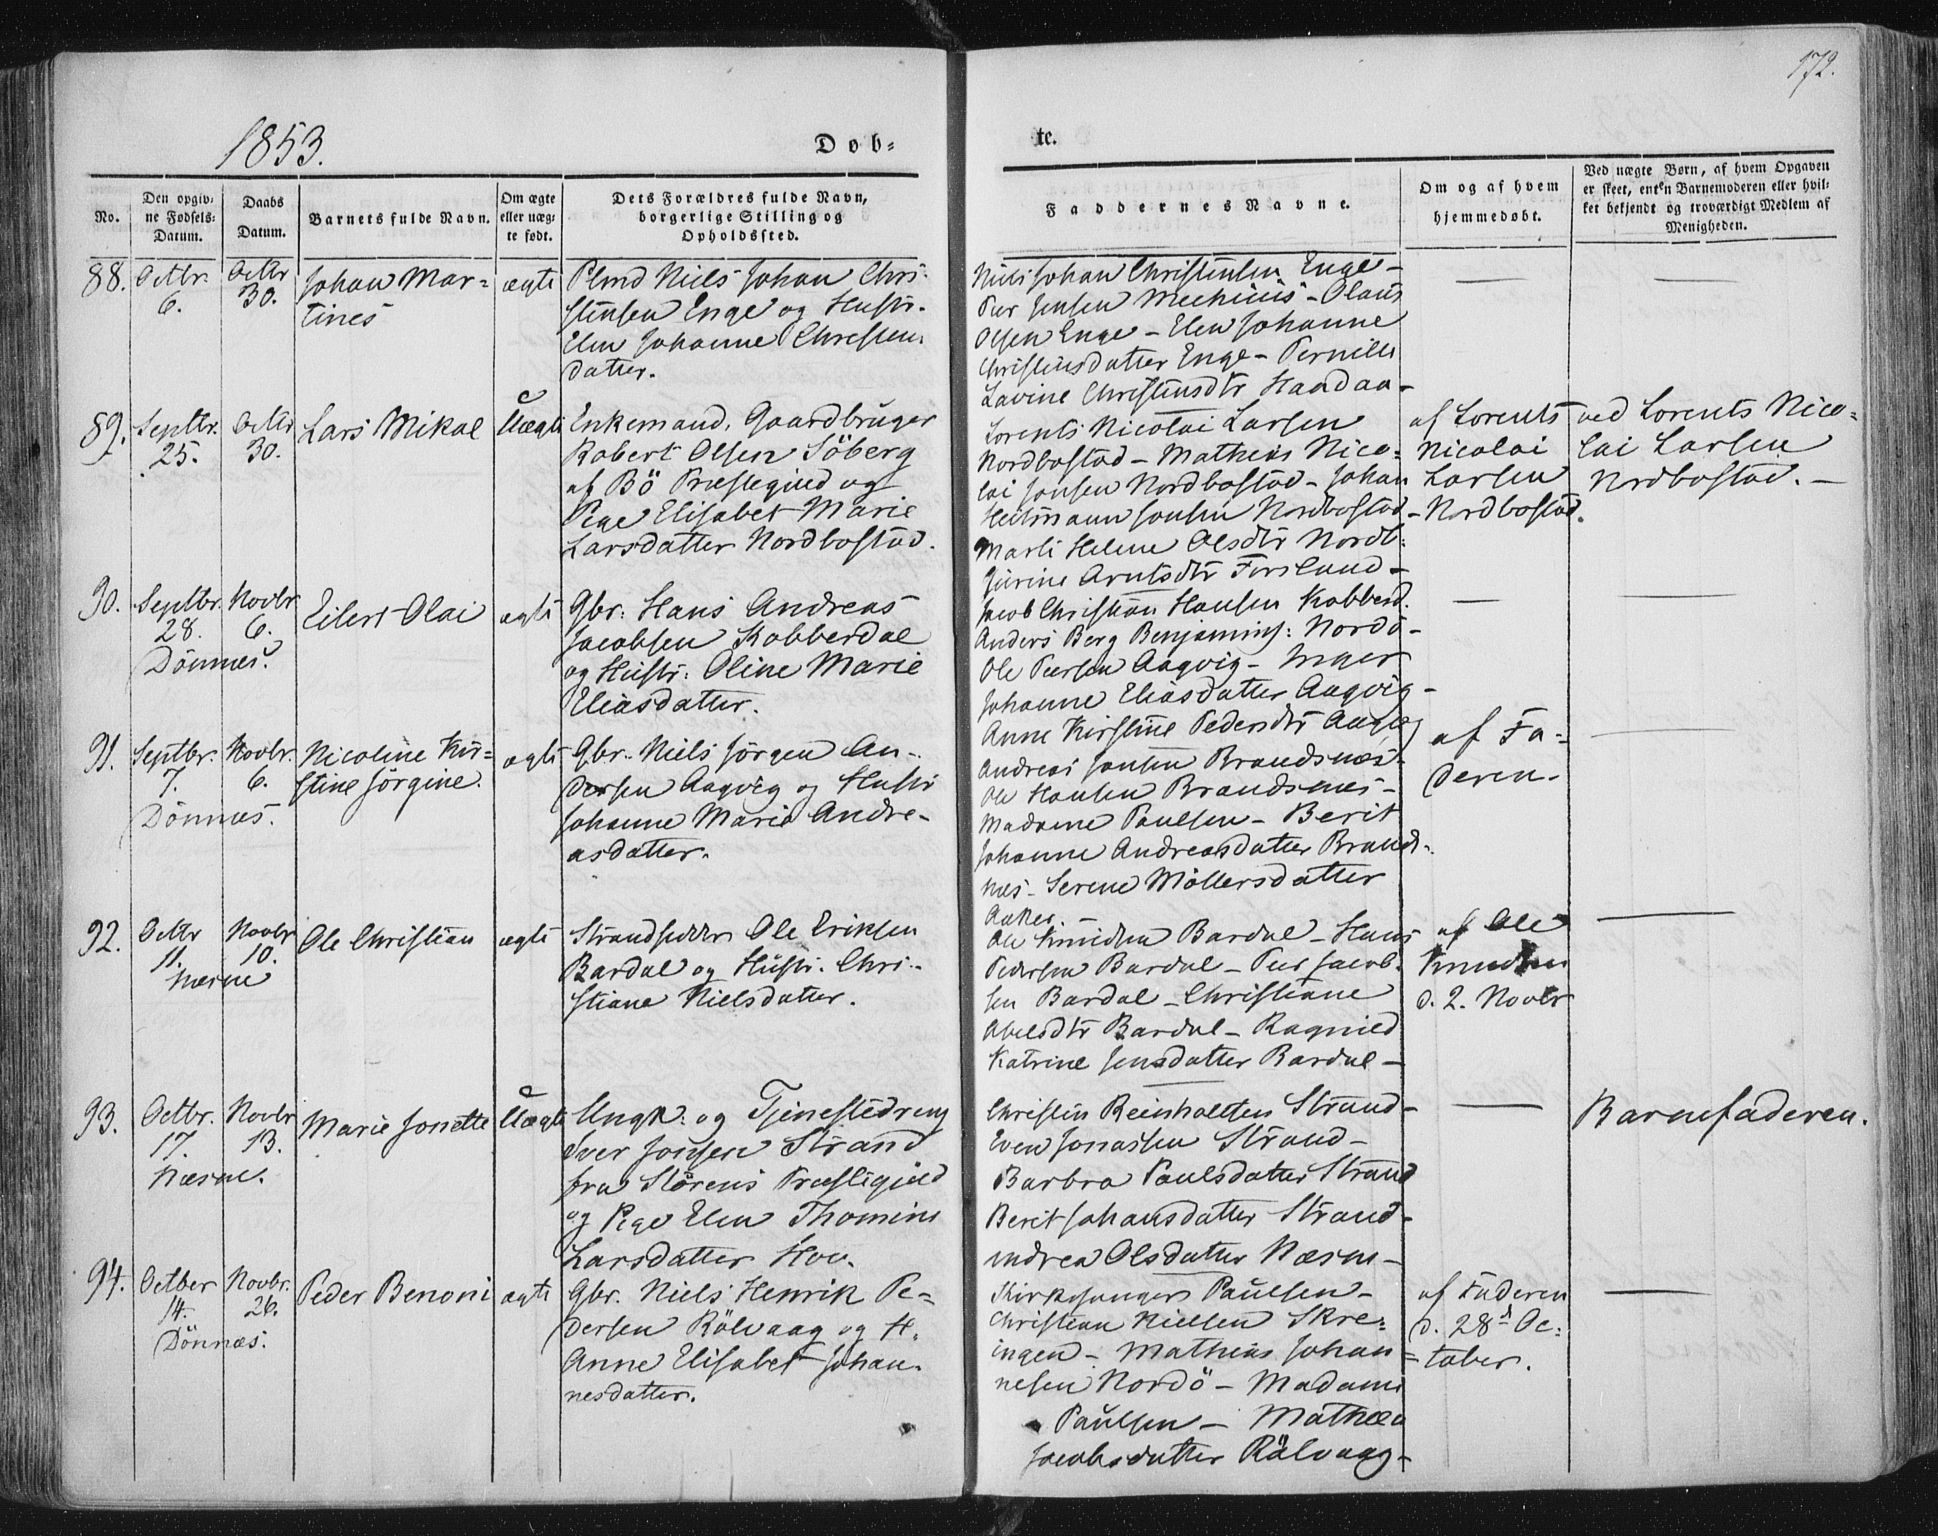 172.
1853.
Døb-
te.
No.
Den opgiv-
ne Fødsels-
Datum.
Daabs
Datum.
Barnets fulde Navn.
Om ægte
eller uæg-
te født.
Dets Forældres fulde Navn,
borgerlige Stilling og
Opholdssted.
Faddernes Navne.
Om og af hvem
hjemmedøbt.
Ved uægte Børn, af hvem Opgaven
er skeet, enten Barnemoderen eller hvil-
ket bekjendt og troværdigt Medlem af
Menigheden.
88.
Octbr.
6.
Octbr
30.
Johan Mar-
tines
ægte
Plmd Niels Johan Chri-
stensen Enge og Hustr.
Elen Johanne Christens
datter.
Niels Johan Christensen Enge -
Peer Jensen - Olaus
Olsen Enge - Elen Johanne
Christensdatter Enge - Pernille
Lavine Christensdtr Haadaa -
89.
Septbr.
25.
Octbr
30.
Lars Mikal
Uægte
Enkemand, Gaardbruger
Robert Olsen Söberg
af Bö Præstegjed og
Pige Elisabet Marie
Larsdatter Nordbostad.
Lorents Nicolai Larsen
Nordbostad - Mathias Nico-
lai Jonsen Nordbostad - Johan
Heitmann Jonsen Nordbostad -
Marli Helene Olsdtr Nordb:
Jürine Arntsdtr Forslund -
af Lorents
Nicolai
Larsen
Nordbostad.
ved Lorents Nico-
lai Larsen
Nordbostad. -
90.
Septbr.
28.
Dönnæs.
Novbr
6.
Eilert Olai
ægte
Gbr: Hans Andreas
Jacobsen Kobberdal
og Hustr: Oline Marie
Eliasdatter.
Jacob Christian Hansen Kobberd.
Anders Berg Benjamins: Nordö -
Ole Peersen Aagvig - Inger
Johanne Eliasdatter Aagvig -
Anne Kirstine Pedersdtr Aagvig
91.
Septbr.
7.
Dönnæs.
Novbr.
6.
Nicoline Kir-
stine Jörgine.
ægte
Gbr. Niels Jörgen An-
dersen Aagvig og Hustr
Johanne Marie Andre-
asdatter.
Andreas Jonsen Brandsnæs -
Ole Hansen Brandsnæs -
Madame Paulsen - Berit
Johanne Andreasdatter Brands-
næs - Serene Möllersdatter
Aaker. -
af Fa-
deren.
92.
Octbr
11.
Næsne
Novbr
10.
Ole Christian
ægte
Strandsidder Ole Eriksen
Bardal og Hustr. Chri-
stiane Nielsdatter.
Ole Knudsen Bardal - Hans
Pedersen Bardal - Peer Jacob-
sen Bardal - Christiane
Abelsdtr Bardal - Ragnild
Katrine Jensdatter Bardal -
af Ole
Knudsen
d. 2. Novbr
93.
Octbr.
17.
Næsne.
Novbr
13.
Marie Jonette
Uægte
Ungk: og Tjenestedreng
Iver Jonsen Strand
fra Störens Præstegjeld
og Pige Elen Thomine
Larsdatter Hov.
Christen Reinholtsen Strand -
Even Jonassen Strand -
Barbra Paulsdatter Strand
Berit Johansdatter Strand -
Andrea Olsdatter Næsne -
Barnefaderen.
94.
Octber
14.
Dönnæs.
Novbr.
26.
Peder Benoni
ægte
Gbr. Niels Henrik Pe-
dersen Rölvaag og H.
Anne Elisabet Johan-
nesdatter.
Kirkesanger Paulsen -
Christian Nielsen Skre-
ingen - Mathias Johan-
nesen Nordö - Madame
Paulsen - Mathea
Jacobsdatter Rölvaag -
af Faderen
d. 28d Oc-
tober.